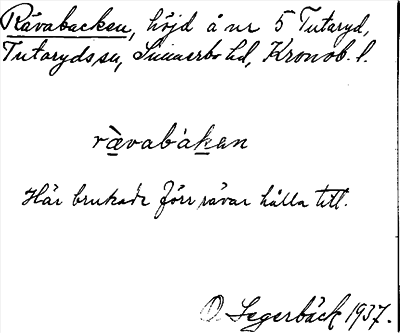 Rävabacken, höjd å nr 5 Tutaryd,
Tutaryds sn, Sunnerbo hd, Kronob. l.
rä̀vabákan
Här brukade förr rävar hålla till.
O. Segerbäck 1937.